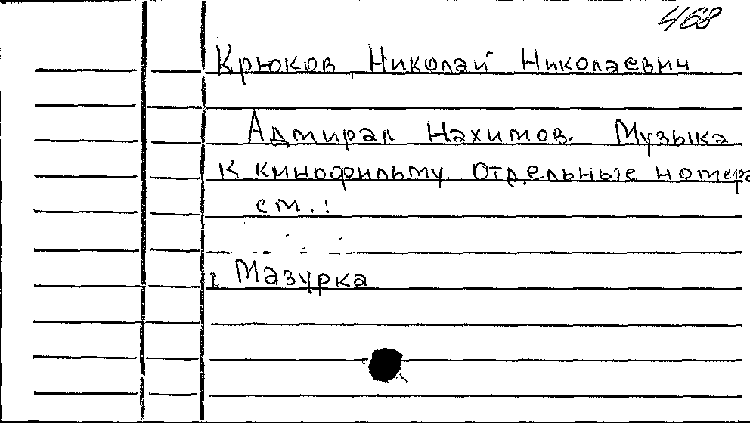 468
Крюков Николай Николаевич
Адмирал Нахимов. Музыка
к кинофильму. Отдельные номера
см.:
1 Мазурка